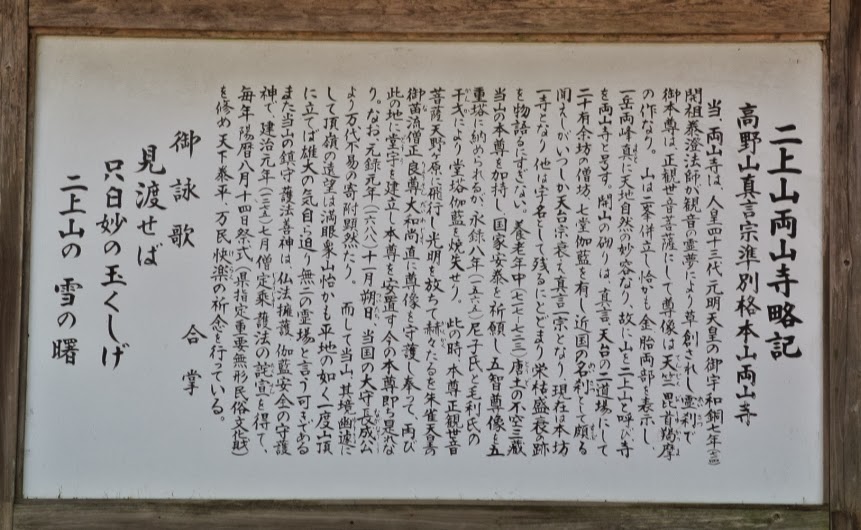 二上山両山寺略記
高野山真言宗準別格本山両山寺
当、両山寺は、人皇四十三代、元明天皇の御宇和銅七年(七一四)
開祖泰澄法師が観音の霊夢により草創されし霊刹で
御本尊は、正観世音菩薩にして尊像は天竺毘首羯摩
の作なり。山は二峯併立し恰かも金胎両部を表示し、
一岳両峰真に天地自然の妙容なり、故に山を二上山と呼び寺
を両山寺と号す。開山の砌りは、真言、天台の二道場にして
二十有余坊の僧坊、七堂伽藍を有し近国の名刹として頗る
聞えしが、いつしか天台宗衰え真言一宗となり、現在は本坊
一寺となり他は字名として残るにとどまり栄枯盛衰の跡
を物語るにすぎない。養老年中(七一七-七二三)唐土の不空三蔵
当山の本尊を加持し、国家安泰を祈願し五智尊像を五
重塔に納められるが、永録八年(一五六五)尼子氏と毛利氏の
干戈により堂塔伽藍を焼失せり。此の時、本尊正観世音
菩薩天野ヶ原に飛行し光明を放ちて赫々たるを朱雀天皇
御苗流僧正良尊大和尚直に尊像を守護し奉って、再び
此の地に堂宇を建立し本尊を安置す今の本尊即ち是れな
り。なお、元録元年(一六八八)十一月朔日、当国の大守長成公
より万代不易の寄附顕然たり。而して当山、其境幽邃に
して頂嶺の遠望は満眼衆山恰かも平地の如く一度山頂
に立てば雄大の気自ら迫り無二の霊場と言う可きである
また当山の鎮守護法善神は、仏法擁護、伽藍安全の守護
神で、建治元年(一二七五)七月僧定乗、護法の託宣を得て、
毎年陽暦八月十四日祭式(県指定重要無形民俗文化財)
を修め天下泰平、万民快楽の祈念を行っている。
合掌
御詠歌
見渡せば
只白妙の玉くしげ
二上山の雪の曙